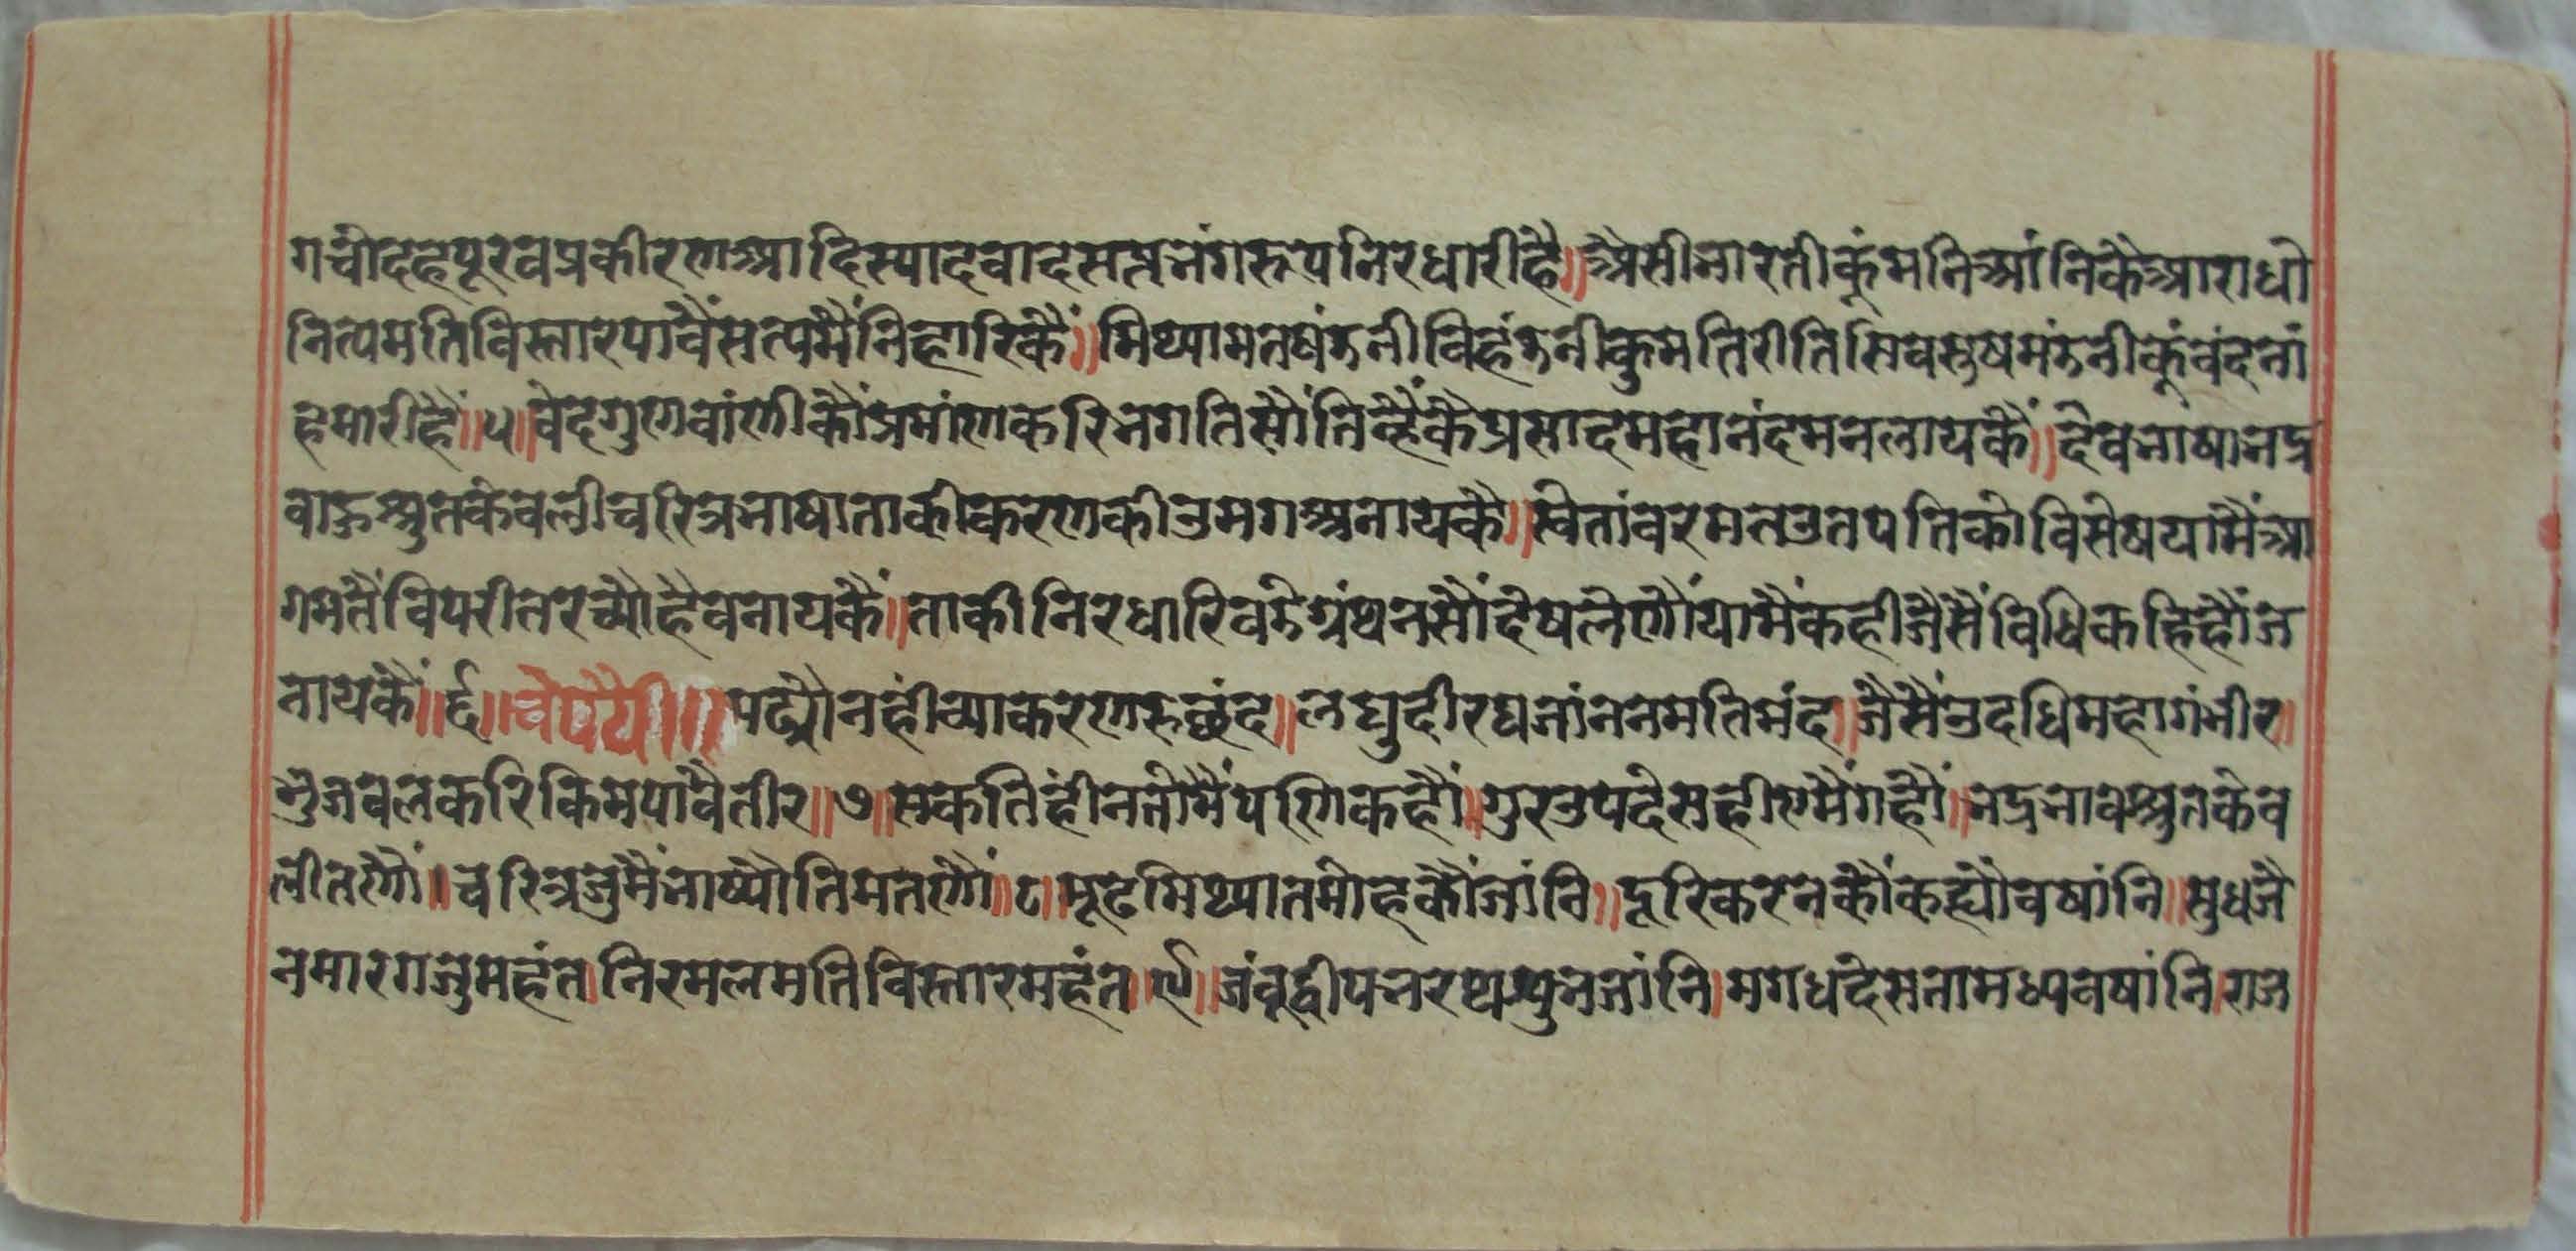 गचौदहपूरवप्रकीरणआदिस्यादवादसप्तभंगरूपनिरधारीहै॥अैसीभारतीकूंभविआंनिकैआराधौ
नित्यमतिविस्तारेपावैंसत्यमैंनिहारिकैं॥मिथ्यामतषंडनीविहंडनीकुमतिरीतिसिवसुषमंडनीकूंवंदनां
हमारीहै॥५॥वेदगुणवांणीकौंप्रमांणकरिभगतिसौंतिन्हैंकैप्रसादमहानंदमनलायकैं॥देवभाषाभद्र
वाऊश्रुतकेवलीचरित्रभाषाताकीकरणकीउमगअनायकै॥स्वेतांवरमतउतपतिकोविसेषयामैंआ
गमतैंविपरीतरच्यौहैवनायकैं॥ताकीनिरधारिवडेग्रंथनसौंदेषलेणौंयामैंकहीजैसैंविधिकहिहौंज
नायकैं॥६॥चोपैयी॥पढ्यौनहींव्याकरणरुछंद॥लघुदीरघजांननमतिमंद॥जैसैंउदधिमहागंभीर॥
भुजवलकरिकिमपावैतीर॥७॥सकतिहींनतोमैंपणिकहौं॥गुरउपदेसहीएमैंगहौं॥भद्रभावश्रुतकेव
लीतणौं॥चरित्रजुमैंभाष्यौतिमतणौं॥८॥मूढमिथ्यातमोहकौंजांनि॥दूरिकरनकौंकह्यौंवषांनि॥सुधजै
नमारगजुमहंत।निरमलमतिविस्तारमहंत।९॥जंवूद्वीपभरथश्रुभजांनि।मगधदेसतामध्यवषांनि।राज